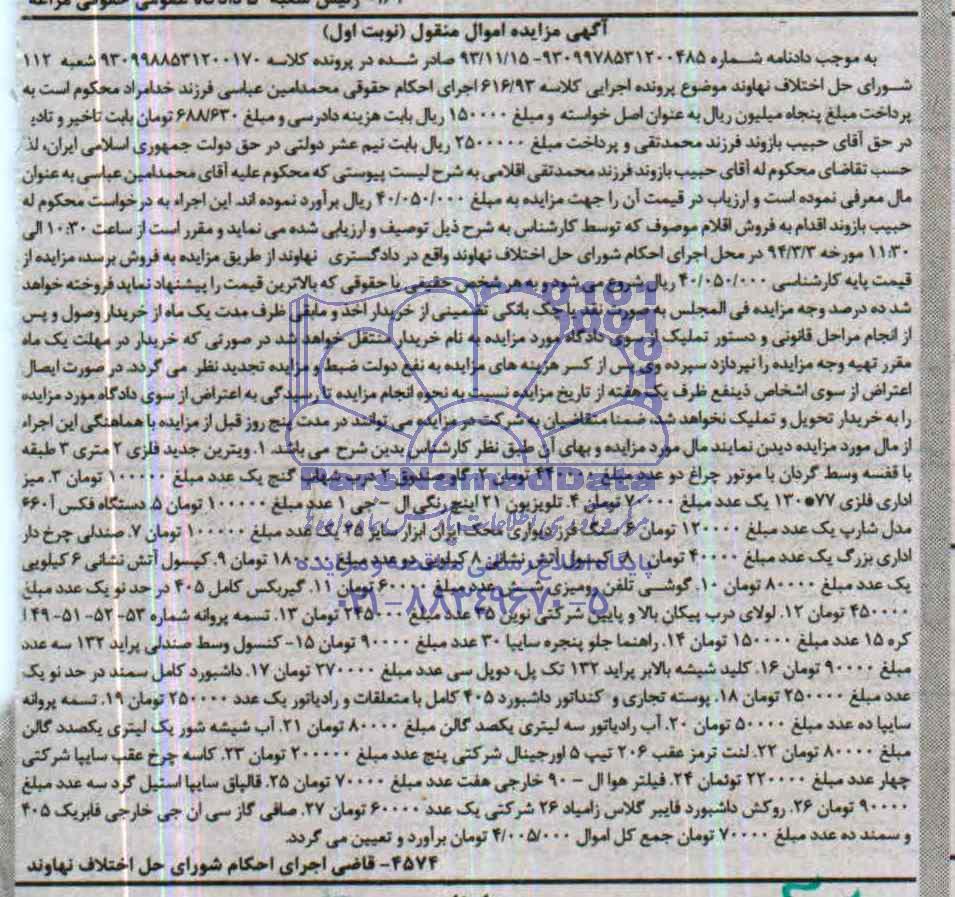 ۱۶۱- رئیس شعبه ۵ دادگاه عمومی حقوقی مراغه
آگهی مزایده اموال منقول (نوبت اول)
به موجب دادنامه شماره ۹۳۰۹۹۷۸۵۳۱۲۰۰۴۸۵- ۹۳/۱۱/۱۵ صادر شده در پرونده کلاسه ۹۳۰۹۹۸۸۵۳۱۲۰۰۱۷۰ شعبه ۱۱۲
شورای حل اختلاف نهاوند موضوع پرونده اجرایی کلاسه ۶۱۶/۹۳ اجرای احکام حقوقی محمدامین عباسی فرزند خدامراد محکوم است به
پرداخت مبلغ پنجاه میلیون ریال به عنوان اصل خواسته و مبلغ ۱۵۰۰۰۰ ریال بابت هزینه دادرسی و مبلغ ۶۸۸/۶۳۰ تومان بابت تاخیر و تادی
در حق آقای حبیب بازوند فرزند محمدتقی و پرداخت مبلغ ۲۵۰۰۰۰۰ ریال بابت نیم عشر دولتی در حق دولت جمهوری اسلامی ایران، لذ
حسب تقاضای محکوم له آقای حبیب بازوند فرزند محمدتقی اقلامی به شرح لیست پیوستی که محکوم علیه آقای محمدامین عباسی به عنوان
مال معرفی نموده است و ارزیاب در قیمت آن را جهت مزایده به مبلغ ۴۰/۰۵۰/۰۰۰ ریال برآورد نموده اند. این اجراء به درخواست محکوم له
حبیب بازوند اقدام به فروش اقلام موصوف که توسط کارشناس به شرح ذیل توصیف و ارزیابی شده می نماید و مقرر است از ساعت ۱۰:۳۰ الی
۱۱:۳۰ مورخه ۹۴/۳/۳ در محل اجرای احکام شورای حل اختلاف نهاوند واقع در دادگستری نهاوند از طریق مزایده به فروش برسد، مزایده از
قیمت پایه کارشناسی ۴۰/۰۵۰/۰۰۰ ریال شروع می شود و به هر شخص حقیقی یا حقوقی که بالاترین قیمت را پیشنهاد نماید فروخته خواهد
شد ده درصد وجه مزایده فی المجلس به صورت نقد یا چک بانکی تضمینی از خریدار اخذ و مابقی ظرف مدت یک ماه از خریدار وصول و پس
از انجام مراحل قانونی و دستور تملیک از سوی دادگاه مورد مزایده به نام خریدار منتقل خواهد شد در صورتی که خریدار در مهلت یک ماه
مقرر تهیه وجه مزایده را نپردازد سپرده وی پس از کسر هزینه های مزایده به نفع دولت ضبط و مزایده تجدید نظر می گردد. در صورت ایصال
اعتراض از سوی اشخاص ذینفع ظرف یک هفته از تاریخ مزایده نسبت به نحوه انجام مزایده تا رسیدگی به اعتراض از سوی دادگاه مورد مزایده
را به خریدار تحویل و تملیک نخواهد شد، ضمنا متقاضیان به شرکت در مزایده می توانند در مدت پنج روز قبل از مزایده با هماهنگی این اجراء
از مال مورد مزایده دیدن نمایند مال مورد مزایده و بهای آن طبق نظر کارشناس بدین شرح می باشد. ۱. ویترین جدید فلزی ۲ متری ۳ طبقه
با قفسه وسط گردان با موتور چراغ دو عدد مبلغ تومان ۲. گاو صندوق ۲ درب شهاب گنج یک عدد مبلغ تومان ۳. میز
اداری فلزی ۷۷*۱۳۰ یک عدد مبلغ ۷۰۰۰۰ تومان ۴. تلویزیون ۲۱ اینچ رنگی ال - جی ۱ عدد مبلغ ۱۰۰۰۰۰ تومان ۵. دستگاه فکس آ۶۶۰
مدل شارپ یک عدد مبلغ ۱۲۰۰۰۰ تومان ۶. سنگ فرز دیواری محک ایران ابزار سایز ۲۵ یک عدد مبلغ ۱۰۰۰۰۰ تومان ۷. صندلی چرخ دار
اداری بزرگ یک عدد مبلغ ۴۰۰۰۰ تومان ۸. کپسول آتش نشانی ۸ کیلویی دو عدد مبلغ ۱۸۰۰۰۰ تومان ۹. کپسول آتش نشانی ۶ کیلویی
یک عدد مبلغ ۸۰۰۰۰ تومان ۱۰. گوشی تلفن رومیزی عدد مبلغ ۶۰۰۰۰ تومان ۱۱. گیربکس کامل ۴۰۵ در حد نو یک عدد مبلغ
۴۵۰۰۰۰ تومان ۱۲. لولای درب پیکان بالا و پایین شرکتی نوین ۳۵ عدد مبلغ ۲۴۵۰۰۰ تومان ۱۳. تسمه پروانه شماره ۵۳-۵۲-۵۱-۴۹ ا
کره ۱۵ عدد مبلغ ۱۵۰۰۰۰ تومان ۱۴. راهنما جلو پنجره سایپا ۳۰ عدد مبلغ ۹۰۰۰۰ تومان ۱۵- کنسول وسط صندلی پراید ۱۳۲ سه عدد
مبلغ ۹۰۰۰۰ تومان ۱۶. کلید شیشه بالابر پراید ۱۳۲ تک پل، دوپل سی عدد مبلغ ۲۷۰۰۰۰ تومان ۱۷. داشبورد کامل سمند در حد نو یک
عدد مبلغ ۲۵۰۰۰۰ تومان ۱۸. پوسته تجاری و کنداتور داشبورد ۴۰۵ کامل با متعلقات و رادیاتور یک عدد ۲۵۰۰۰۰ تومان ۱۹. تسمه پروانه
سایپا ده عدد مبلغ ۵۰۰۰۰ تومان ۲۰. آب رادیاتور سه لیتری یکصد گالن مبلغ ۸۰۰۰۰ تومان ۲۱. آب شیشه شور یک لیتری یکصدد گالن
مبلغ ۸۰۰۰۰ تومان ۲۲. لنت ترمز عقب ۲۰۶ تیپ ۵ اورجینال شرکتی پنج عدد مبلغ ۲۰۰۰۰۰ تومان ۲۳. کاسه چرخ عقب سایپا شرکتی
چهار عدد مبلغ ۲۲۰۰۰۰ توئمان ۲۴. فیلتر هوا ال - ۹۰ خارجی هفت عدد مبلغ ۷۰۰۰۰ تومان ۲۵. قالپاق سایپا استیل گرد سه عدد مبلغ
۹۰۰۰۰ تومان ۲۶. روکش داشبورد فایبر گلاس زامیاد ۲۶ شرکتی یک عدد ۶۰۰۰۰ تومان ۲۷. صافی گاز سی ان جی خارجی فابریک ۴۰۵
و سمند ده عدد مبلغ ۷۰۰۰۰ تومان جمع کل اموال ۴/۰۰۵/۰۰۰ تومان برآورد و تعیین می گردد.
۴۵۷۴- قاضی اجرای احکام شورای حل اختلاف نهاوند
ParsNamadData
پایگاه اطلاع رسانی مناقصه و مزایده
۰۲۱-۸۸۳۴۹۶۷۰-۵